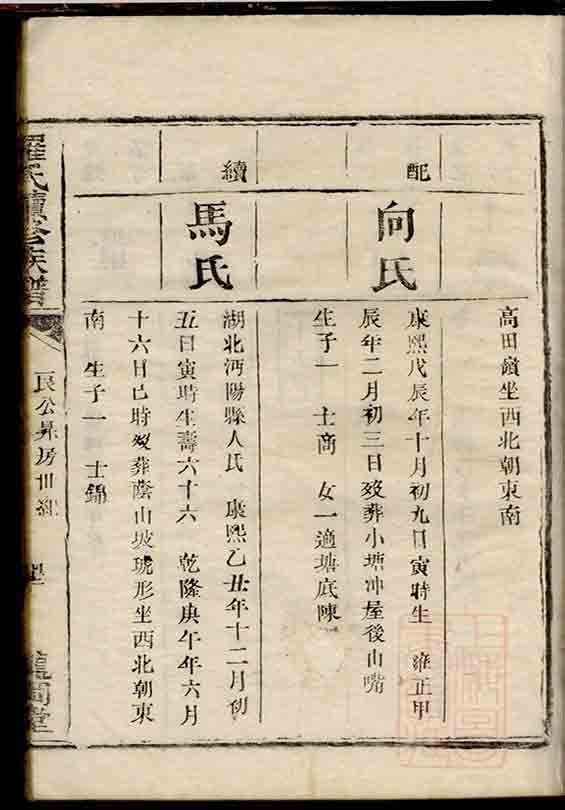 高田嶺坐西北朝東南
配
向氏
康熙戊辰年十月初九日寅時生　雍正甲
辰年二月初三日歿葬小塘冲屋後山嘴
生子一　士商　女一適塘底陳
續
馬氏
湖北沔陽縣人氏　康熙乙丑年十二月初
五日寅時生壽六十六　乾隆庚午年六月
十六日巳時歿葬蔭山坡琥形坐西北朝東
南　生子一　士錦
羅氏續公族譜
民公昇房卅紀
堂